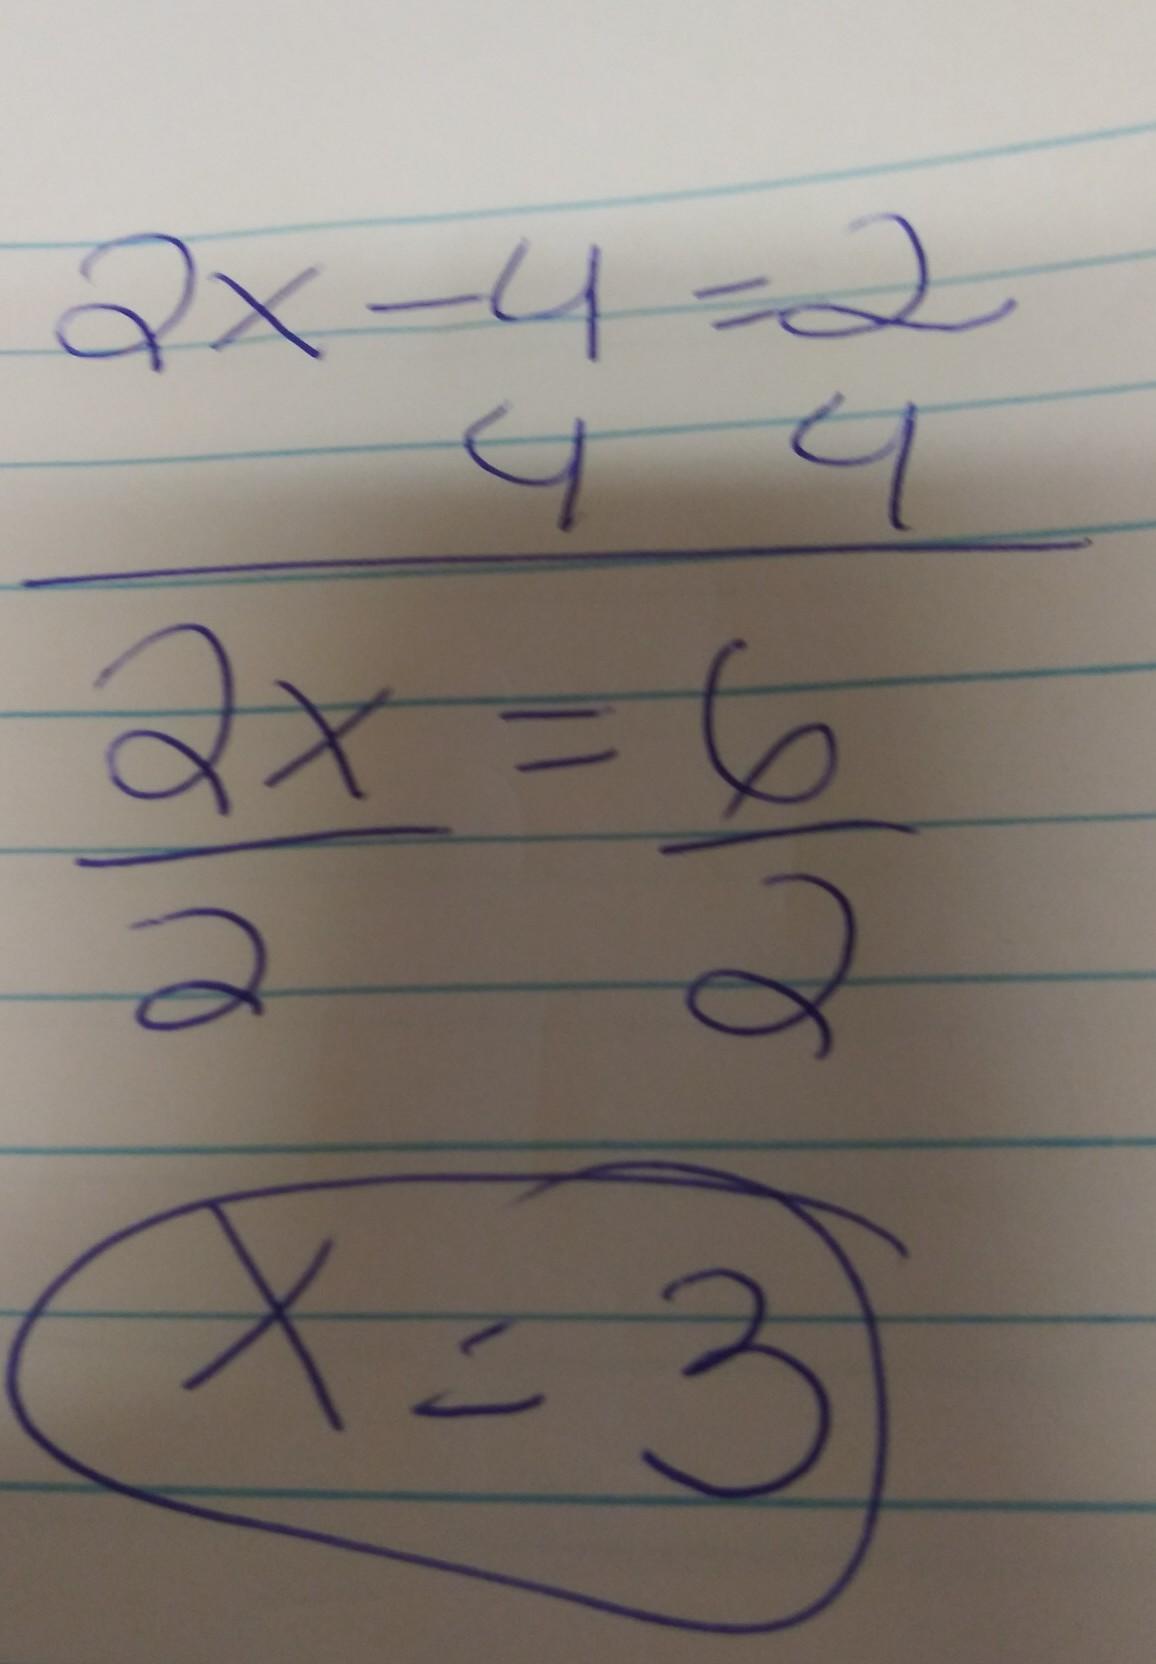 2x - 4 = 2
4 4
2x = 6
2 2
x = 3